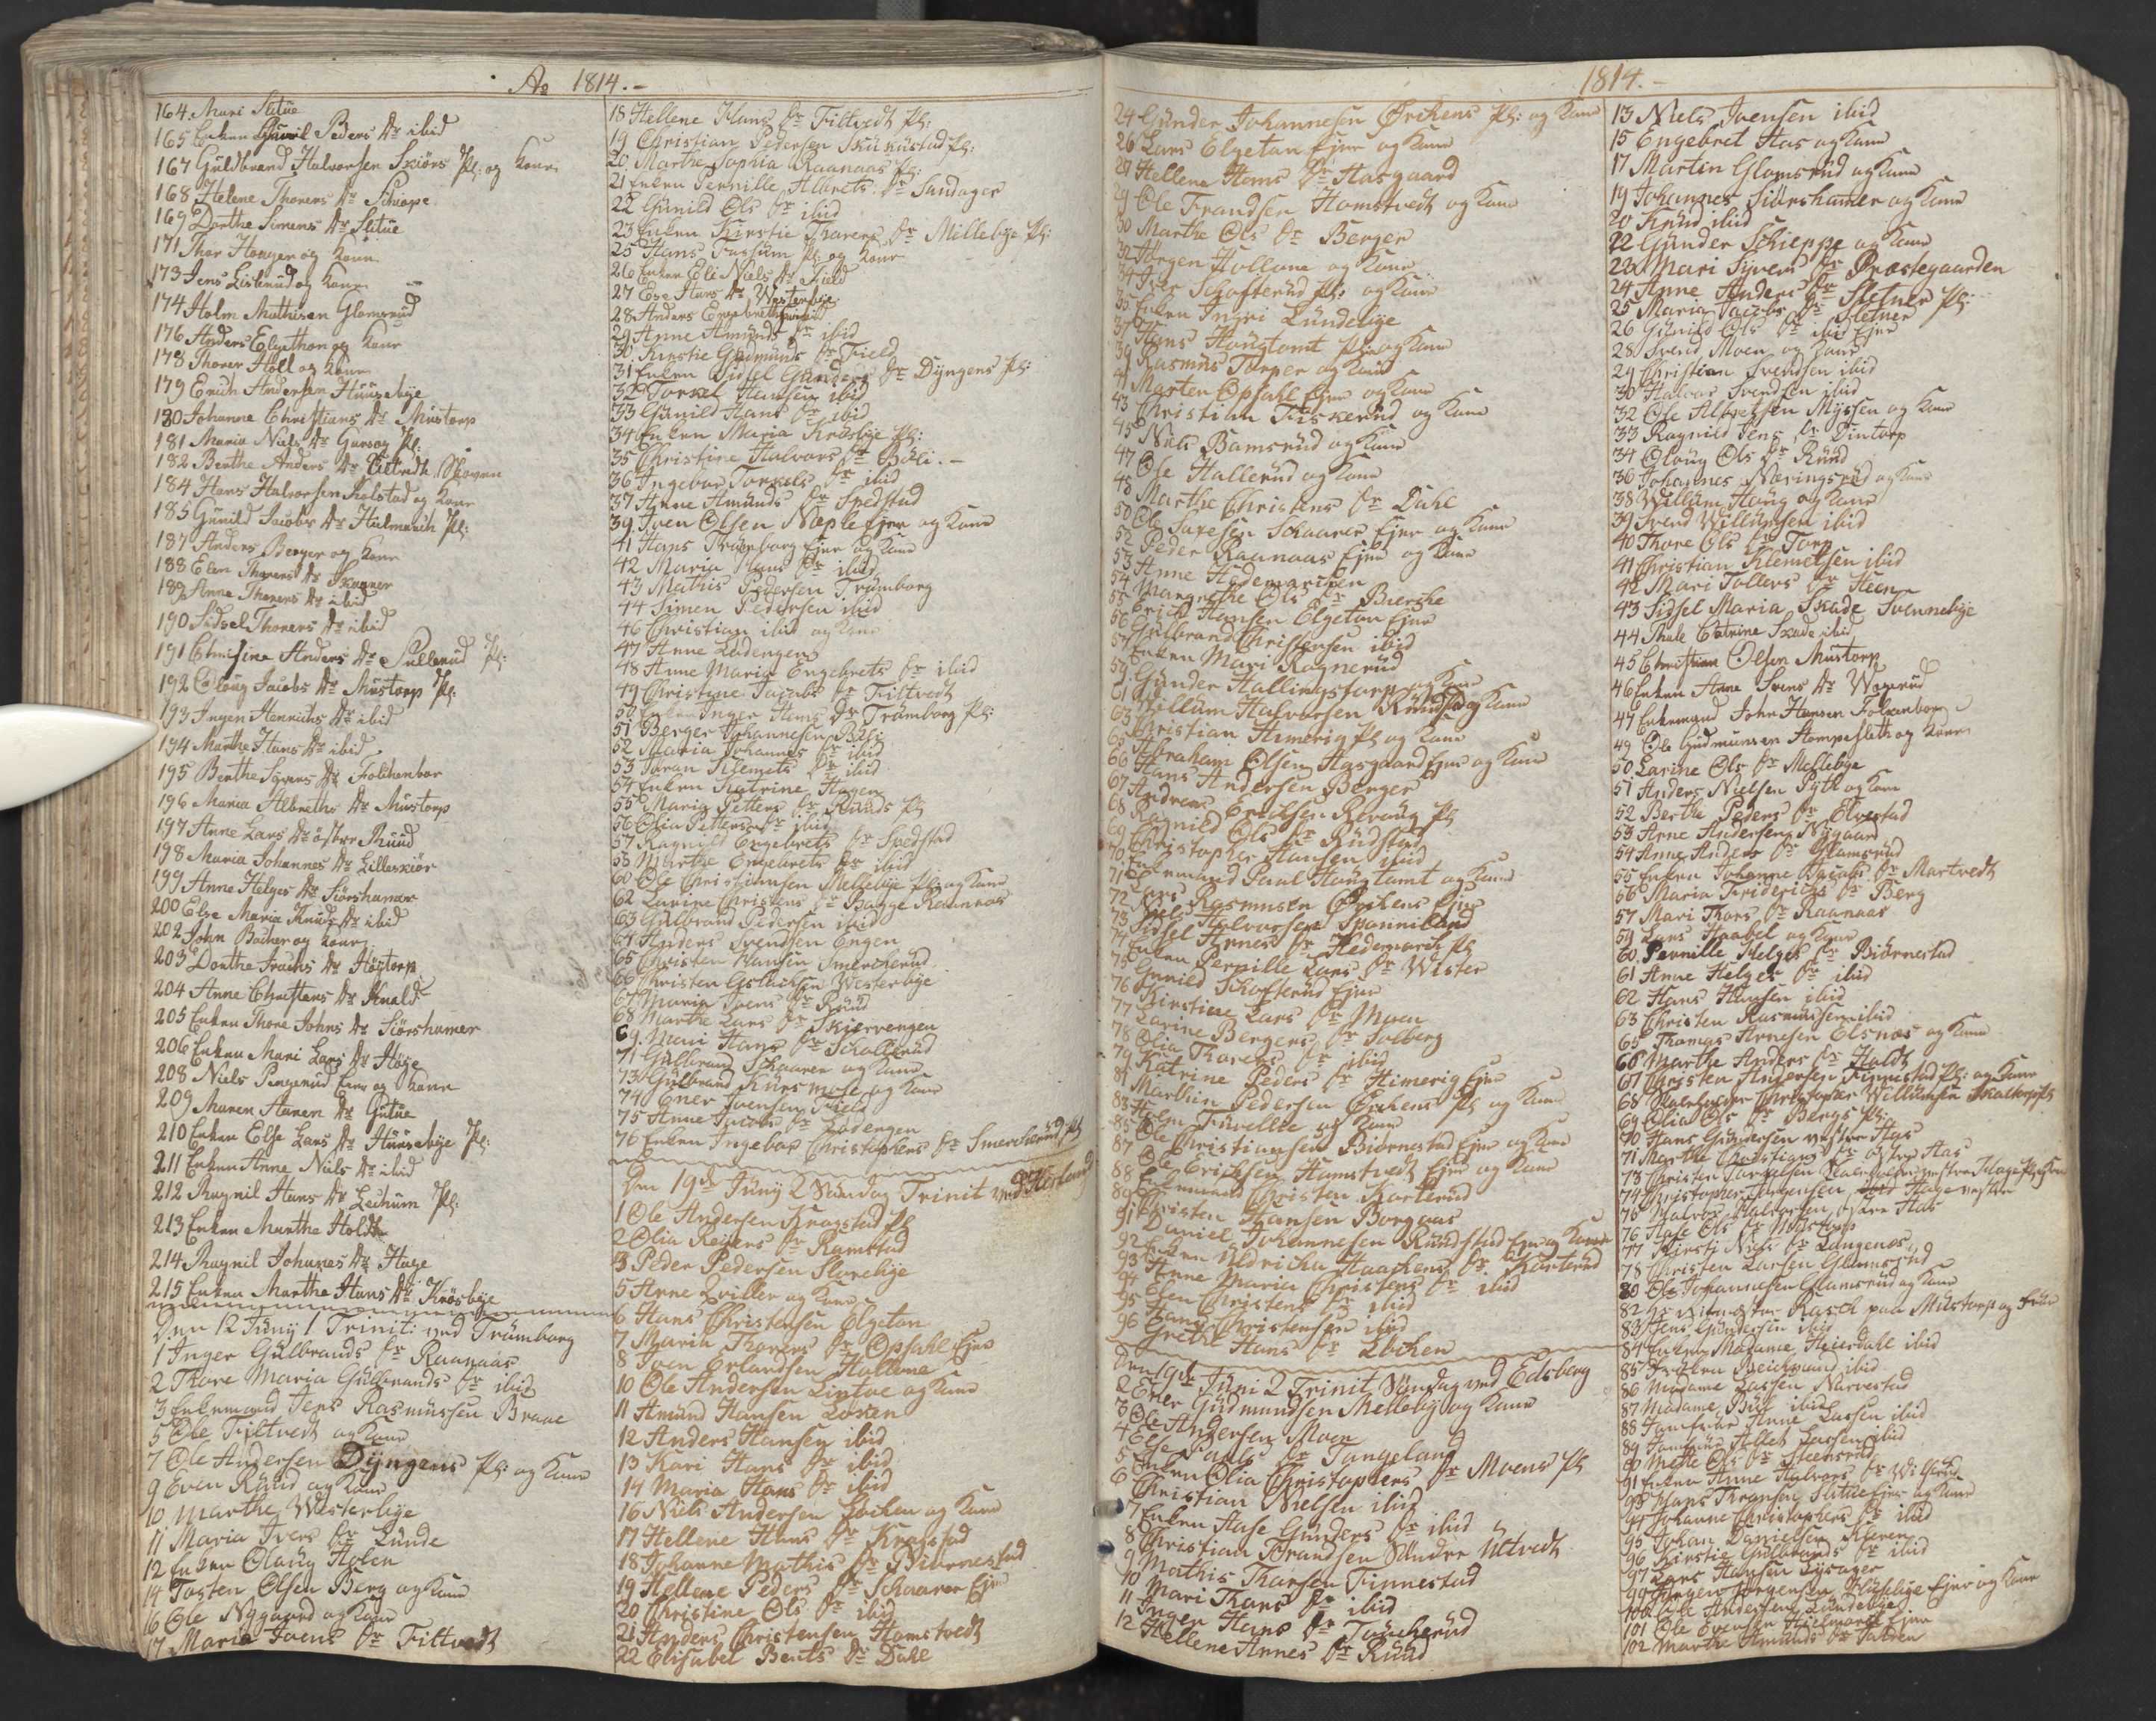 Ao 1814.-
164 Mari Slitue
165 Enken Gunil Peders Dr ibid
167 Guldbrand Halvorsen Skiørs Pl: og Kone
168 Helene Thorers Dr Schiøpe
169 Dorthe Simens Dr Slitue
171 Thor Houger og Kone
173 Jens Listerud og Kone
174 Holm Mathisen Glomsrud
176 Anders Elgethon og Kone
178 Thorer Holl og Kone
179 Erich Andersen Huusebye
180 Johanne Christians Dr Mustorp
181 Maria Niels Dr Garsog Pl:
182 Berthe Anders Dr Ultvedt Skoven
184 Hans Halvorsen Kolstad og Kone
185 Gunild Jacobs Dr Hielmark Pl:
187 Anders Berger og Kone
188 Elen Thorers Dr Skaarer
189 Anne Thorers Dr ibid
190 Sidsel Thorers Dr ibid
191 Christine Anders Dr Pullerud Pl:
192 Oloug Jacobs Dr Mustorp Pl:
193 Ingen Henrichs Dr ibid
194 Marthe Hans Dr ibid
195 Berthe Syvers Dr Folchenbor
196 Maria Albreths Dr Mustorp
197 Anne Lars Dr østere Ruud
198 Maria Johannes Dr Lilleskiør
199 Anne Helges Dr Siørshamer
200 Else Maria Knuds Dr ibid
202 John Bacher og Kone
203 Dorthe Isachs Dr Høytorp
204 Anne Christens Dr Knold
205 Enken Thore Johns Dr Siørshamer
206 Enken Mari Lars Dr Høye
208 Niels Pengerud Ejer og Kone
209 Maren Amen Dr Gutue
210 Enken Else Lars Dr Huusebye Pl:
211 Enken Anne Niels Dr ibid
212 Ragnil Hans Dr Lechum Pl:
213 Enken Marthe Holdt
214 Ragnil Johanes Dr Hage
215 Enken Marthe Hans Dr Krosbye
Den 12 Juny 1 Trinit: ved Trømborg
1 Inger Gulbrands Dr Raanaas
2 Thore Maria Gulbrands Dr ibid
3 Enkemand Jens Rasmussen Braae
5 Ole Tiltvedt og Kone
7 Ole Andersen Dyngens Pl: og Kone
9 Even Ruud og Kone
10 Marthe Westerbye
11 Maria Ivers Dr Lunde
12 Enken Olaug Holen
14 Tosten Olsen Berg og Kone
16 Ole Nygaard og Kone
17 Maria Joens Dr Tiltvedt
18 Hellene Hans Dr Tiltvedt Pl:
19 Christian Pedersen Skukustad Pl:
20 Marthe Sophia Raanaas Pl:
21 Enken Pernille Albrets Dr Sandager
22 Gunild Ols Dr ibid
23 Enken Kirstie Thorers Dr Millebye Pl:
25 Hans Fossum Pl: og Kone
26 Enken Eli Niels Dr Field
27 Else Hans Dr Westerbye
28 Anders Engebretsen ibid
29 Anne Amunds Dr ibid
30 Kirstie Gudmunds Dr Field
31 Enken Sidsel Gunders Dr Dyngens Pl:
32 Torkel Hansen ibid
33 Gunild Hans Dr ibid
34 Enken Maria Krosbye Pl:
35 Christine Halvors Dr Bøli.-
36 Ingebor Torkels Dr ibid
37 Anne Amunds Dr Spedstad
39 Iven Olsen Næple Ejer og Kone
41 Hans Trømborg Ejer og Kone
42 Maria Hans Dr ibid
43 Mathis Pedersen Trømborg
44 Simen Pedersen ibid
46 Christian ibid og Kone
47 Anne Ladengen
48 Anne Maria Engebrets Dr ibid
49 Christine Jacobs Dr Tiltvedt
50 Enken Inger Hans Dr Trømborg Pl:
51 Berger Johannesen Bøli
52 Maria Johannes Dr ibid
53 Joran Klemets Dr ibid
54 Enken Katrine Hagen
55 Maria Petters Dr Ruuds Pl
56 Olia Petters Dr ibid
57 Ragnild Engebrets Dr Spedstad
58 Marthe Engebrets Dr ibid
60 Ole Christiansen Mellebye Pl: og Kone
62 Lavine Christens Dr Bagge Raanaas
63 Gulbrand Pedersen ibid
64 Anders Svendsen Engen
65 Christen Hansen Smercherud
66 Christen Gslachsen Westerbye
67 Maria Ivers Dr Ruud
68 Marthe Lars Dr Skiervengen
69 Mari Hans Dr Schollerud
71 Gulbrand Schaarer og Kone
73 Gulbrand Kursmose og Kone
74 Ener Ivensen Field
75 Anne Jacobs Dr Lodengen
76 Enken Ingebor Christophers Dr Smercherud Pl
Den 19de Juny 2 Søndag Trinit ved Herland
1 Ole Andersen Kragstad Pl
2 Olia Reiers Dr Ramstad
3 Peder Pedersen Slorebye
5 Arne Qviller og Kone
6 Hans Christensen Elgeton
7 Maria Thorers Dr Opsahl Ejer
8 Iven Erlandsen Hallene
10 Ole Andersen Lintoe og Kone
11 Amund Hansen Løken
12 Anders Hansen ibid
13 Kari Hans Dr ibid
14 Maria Hans Dr ibid
16 Niels Andersen Løchen og Kone
17 Hellene Hans Dr Kragstad
18 Johanne Mathis Dr Biørnestad
19 Hellene Peders Dr Schaarer Ejer
20 Christine Ols Dr ibid
21 Anders Christensen Homstvedt
22 Elisabet Bents Dr Dahl
1814.-
24 Gunder Johannesen Ørchens Pl: og Kone
26 Lars Elgetan Ejer og Kone
27 Hellene Hans Dr Hasgaard
29 Ole Frandsen Homstvedt og Kone
30 Marthe Ols Dr Berger
32 Jørgen Hollane og Kone
34 Iver Schofterud Pl: og Kone
35 Enken Ingri Lundebye
37 Hans Haugtomt Pl: og Kone
39 Rasmus Torper og Kone
41 Marten Opsahl Ejer og Kone
43 Christian Fiskerud og Kone
45 Niels Bamsrud og Kone
47 Ole Hallerud og Kone
48 Marthe Christens Dr Dahl
50 Ole Saxesen Schaarer Ejer og Kone
52 Peder Raanaas Ejer og Kone
53 Anne Hedemarchen
54 Mangrethe Ols Dr Bierche
55 Erich Hansen Elgetan Ejer
56 Gulbrand Christensen ibid
57 Enken Mari Ragnerud
59 Gunder Hallingstorp og Kone
61 Willum Halvorsen Rudsta og Kone
63 Christian Himerig Pl og Kone
65 Abraham Olsen Hasgaard Ejer og Kone
66 Hans Andersen Berger
67 Andreas Erichsen Revoug Pl
68 Ragnild Ols Dr Rudstad
69 Christopher Hansen ibid
70 Enkemand Paul Haugtomt og Kone
71 Lars Rasmusen Ørchens Ejer
72 Niels Halvorsen Spanniland
73 Sidsel Annes Dr Hedemarch Pl
74 Enken Pernille Lars Dr Wister
75 Gunild Schofterud Ejer
76 Kirstine Lars Dr Moen
77 Larine Bergers Dr Solberg
78 Olia Thorers Dr ibid
79 Katrine Peders Dr Himerig Ejer
81 Marthin Pedersen Ørchens Pl og Kone
83 Holm Fruvelle og Kone
85 Ole Christiansen Biørnestad Ejer og Kone
87 Ole Erichsen Hamstvedt Ejer og Kone
88 Enkemand Christen Korterud
89 Christen Hansen Borgaas
91 Daniel Johannesen Rudstad Ejer og Kone
92 Enken Uldricha Haachens Dr Korterud
93 Anne Maria Christens Dr ibid
94 Elen Christens Dr ibid
95 Hans Christensen ibid
96 Grethe Hans Dr Løchen
Den 19de Juni 2 Trinit Søndag ved Edsberg
2 Erler Gudmundsen Mellebye og Kone
3 Ole Andersen Moen
4 Else Pauls Dr Tangeland
5 Enken Olia Christophers Dr Moens Pl
6 Christian Nielsen ibid
7 Enken Aase Gunders Dr ibid
8 Christian Frandsen Søndre Ultvedt
9 Mathis Thorsen Finnestad
10 Mari Thors Dr ibid
11 Ingen Hans Dr Toucherud
12 Hellene Annes Dr Ruud
13 Niels Ivensen ibid
15 Engebret Has og Kone
17 Martin Glomsrud og Kone
19 Johannes Siørshamer og Kone
20 Knud ibid
22 Gunder Schieppe og Kone
23 Mari Syvers Dr Præstegaarden
24 Anne Anders Dr Sletner Pl:
25 Maria Jacobs Dr Sletner
26 Gunild Ols Dr ibid Ejer
28 Svend Moen og Kone
29 Christian Svendsen ibid
30 Halvor Svendsen ibid
32 Ole Alfvelsen Myssen og Kone
33 Ragnild Jens Dr Dintorp
34 Oloug Ols Dr Ruud
36 Johannes Næringsrud og Kone
38 Willum Haug og Kone
39 Svend Willumsen ibid
40 Thore Ols Dr Torp
41 Christian Klemetsen ibid
42 Mari Tollevs Dr Steen
43 Sidsel Maria Skade Svennebye
44 Thale Catrine Skade ibid
45 Christian Olsen Mustorp
46 Enken Anne Svens Dr Wegerud
47 Enkemand John Hansen Folkenborg
49 Ole Gudmunsen Stompesleth og Kone
50 Larine Ols Dr Mellebye
51 Anders Nielsen Pytt og Kone
52 Berthe Peders Dr Elvestad
53 Arne Andersen Nygaard
54 Anne Anders Dr Glamsrud
55 Enken Johanne Jacobs Dr Martvedt
56 Maria Friderichs Dr Berg
57 Mari Thors Dr Raanaas
59 Lars Haabel og Kone
60 Pernille Helges Dr Biørnestad
61 Anne Helges Dr ibid
62 Hans Hansen ibid
63 Christen Rasmussen ibid
65 Thomas Arnesen Elsnæs og Kone
66 Marthe Anders Dr Holdt
67 Christen Andersen Finnestad Pl: og Kone
68 Skolholder Christopher Willumsen Skoltorp Pl
69 Olia Ols Dr Bergs Pl:
70 Hans Gundersen vestre Has
71 Marthe Christians Dr østre Has
73 Christen Torgelsen Skoleholder vestre Hage Pl: og Kone
74 Christopher Jørgensen Hage vestre
75 Halvor Halvorsen østre Has
76 Aase Ols Dr Mustorp
77 Kirsti Niels Dr Langenæs
78 Christen Larsen Glomsrud
80 Ole Johannesen Glamsrud og Kone
82 Hr Ritmester Rasch paa Mustorp og Frue
83 Jens Gundersen ibid
84 Enken Madame Heierdahl ibid
85 Frøken Reichwand ibid
86 Madame Lassen Narvestad
87 Madame Bur ibid
88 Jomfrue Anne Lassen ibid
89 Jomfrue Mallet Lassen ibid
90 Mette Ols Dr Steensrud
91 Enken Anne Halvors Dr Wilberg
93 Hans Thronsen Slitue Ejer og Kone
94 Johanne Christophers Dr ibid
95 Johan Danielsen Kieren
96 Kirstie Gulbrands Dr ibid
97 Lars Hansen Lysager
99 Jørgen Jørgensen Huusebye Ejer og Kone
100 Ole Andersen Lundebye
101 Ole Evensen Hielmark Ejer
102 Marthe Amunds Dr Salden